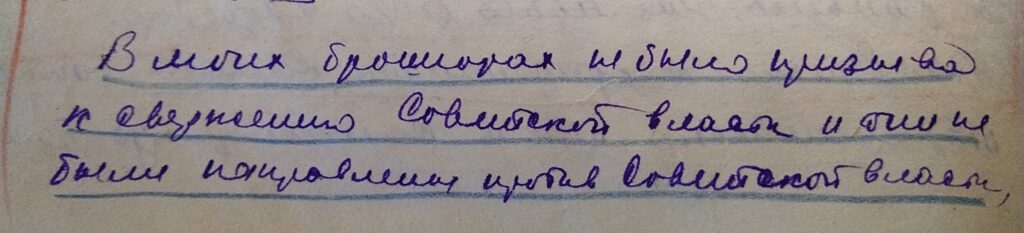 В моих брошюрах не было призыва
к свержению Советской власти и они не
были направлены против Советской власти,